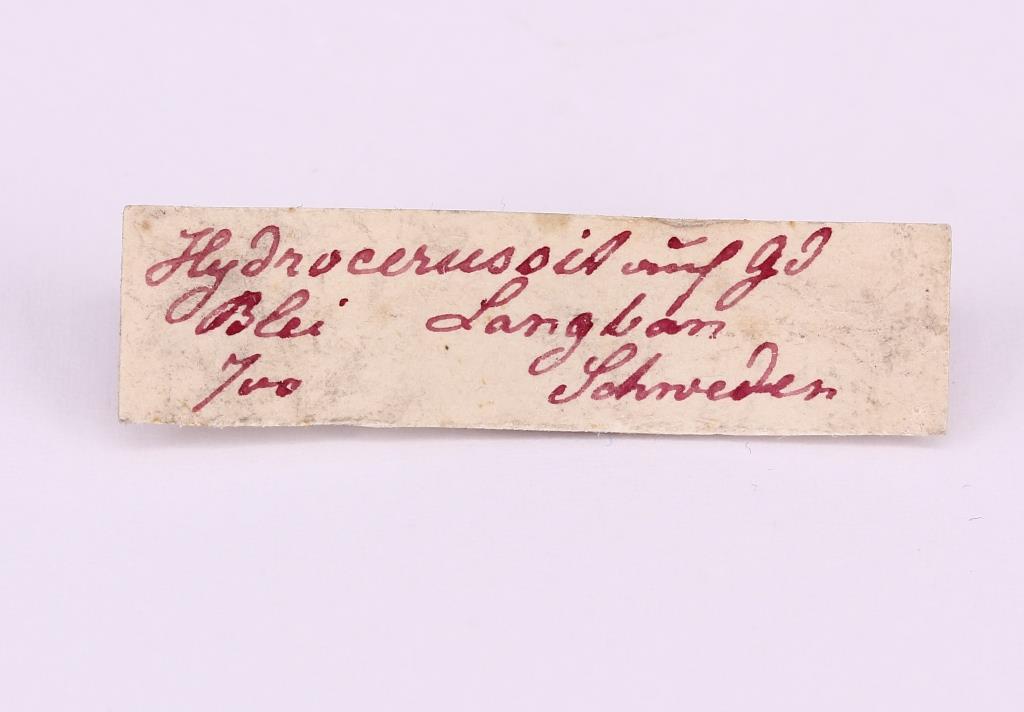 Hydrocerussit auf gd
Blei Langban
Schweden